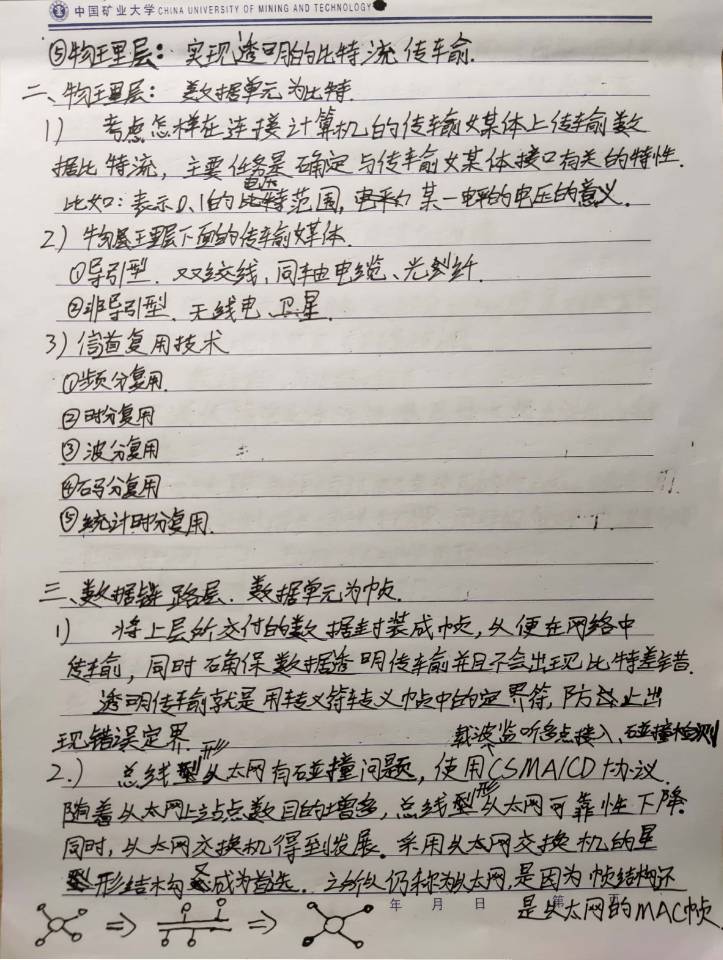 中国矿业大学 CHINA UNIVERSITY OF MINING AND TECHNOLOGY
⑤物理层：实现透明的比特流传输.
二、物理层：数据单元为比特.
1） 考虑怎样在连接计算机的传输媒体上传输数
据比特流，主要任务是确定与传输媒体接口有关的特性.
电压
比如：表示0、1的范围，某一电平的电压的意义.
2）物理层下面的传输媒体.
①导引型.双绞线，同轴电缆、光纤.
②非导引型.无线电、卫星.
3）信道复用技术
①频分复用
②时分复用
③波分复用
④码分复用
⑤统计时分复用.
三、数据链路层.数据单元为帧.
1） 将上层所交付的数据封装成帧，以便在网络中
传输，同时确保数据透明传输并且不会出现比特差错.
透明传输就是用转义符转义帧中的定界符，防止出
现错误定界.
载波监听多点接入、碰撞检测
2.）总线形以太网有碰撞问题，使用CSMA/CD协议.
随着以太网上站点数目的增多，总线形以太网可靠性下降.
同时，以太网交换机得到发展。采用以太网交换机的星
形结构成为首选.之所以仍称为以太网，是因为帧结构还
是以太网的MAC帧.
年 月 日 第